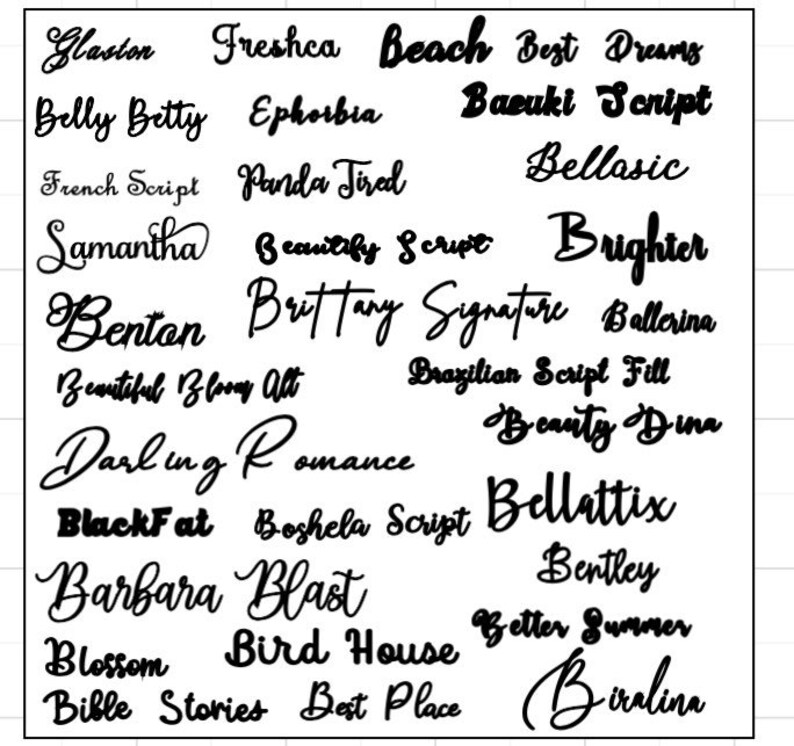 Glaston Freshca Beach Best Dreams
Belly Betty Ephorbia Baeuki Script
French Script Panda Tired Bellasic
Samantha Beautify Script Brighter
Benton Brittany Signature Ballerina
Beautiful Bloom Alt Brazilian Script Fill
Beauty Dina
Darling Romance
BlackFat Boshela Script Bellattix
Barbara Blast Bentley
Blossom Bird House Better Summer
Bible Stories Best Place Biralina